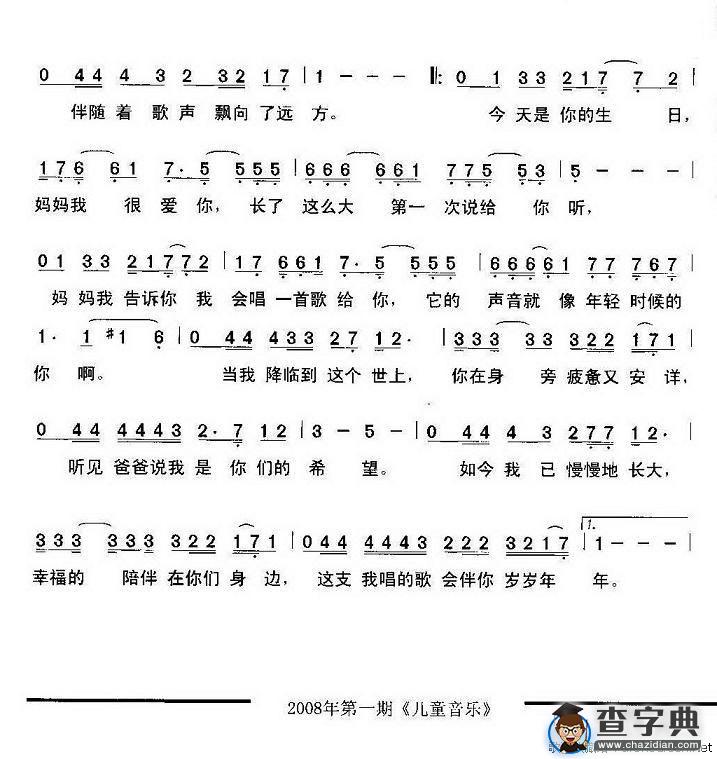 0 44 4 3 2 32 17 | 1 - - - ‖: 0 1 33 217 7 2 |
伴随着 歌声 飘向了远方。 今天是你的生日，
176 661 7· 5 5 555 | 666 6 661 775 5 53 | 5 - - - |
妈妈我 很爱你，长了 这么大 第一次说给 你听，
01 33 21772 | 17 661 7· 5 5 555 | 66661 77 767 |
妈妈我告诉你我 会唱一首歌给你，它的 声音就像年轻时候的
1· 1 #1 6 | 0 44 433 27 12· | 333 3 33 322 171 |
你啊。 当我降临到这个世上， 你在身 旁疲惫又安详，
0 44 4443 2·7 12 | 3 - 5 - | 0 44 4 3 277 12· |
听见爸爸说我是你们的希望。 如今我已慢慢地长大，
333 3 333 322 171 | 044 4443 222 3217 | 1. 1 - - - |
幸福的 陪伴在你们身边， 这支我唱的歌会伴你岁岁年 年。
2008年第一期《儿童音乐》
查字典
www.chazidian.com